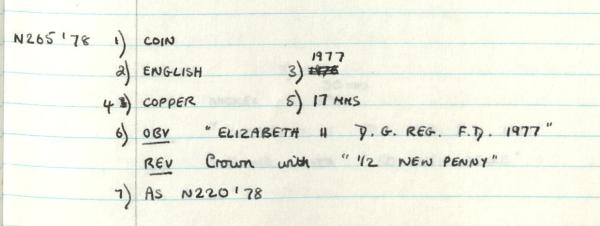 N265 '78 1) COIN
2) ENGLISH 3) 1977
4) COPPER 5) 17 MMS
6) OBV "ELIZABETH II D. G. REG. F.D. 1977"
REV Crown with "1/2 NEW PENNY"
7) AS N220 '78